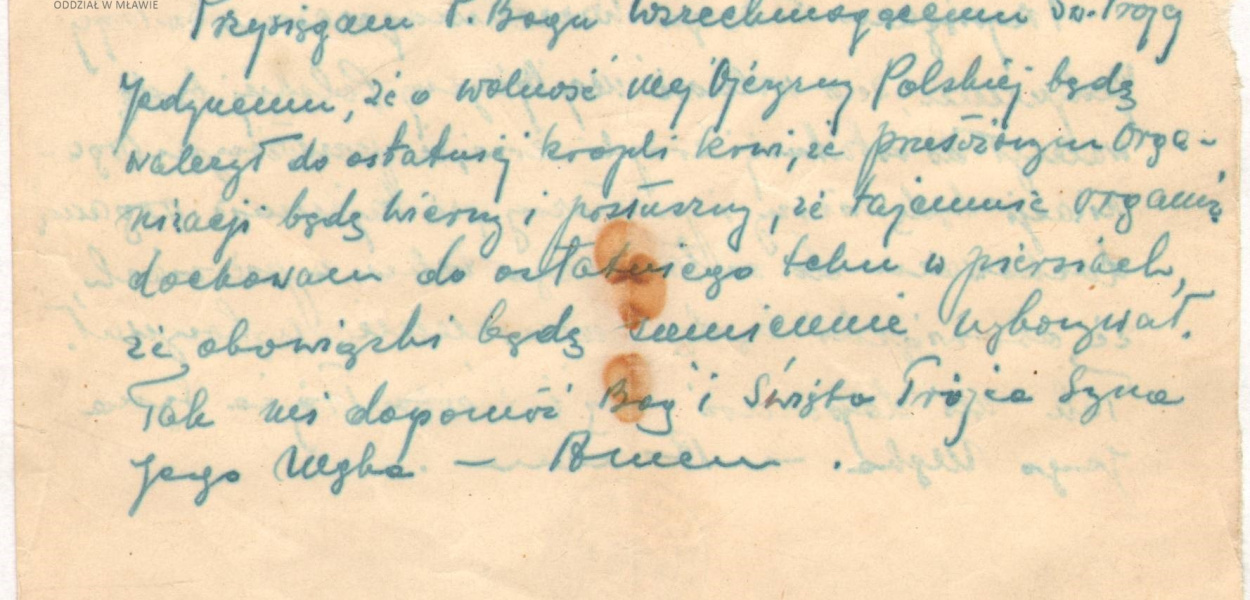 ODDZIAŁ W MŁAWIE
Przysięgam P. Bogu Wszechmogącemu Św. Trójcy
Jedynemu, że o wolność mej Ojczyzny Polskiej będę
walczył do ostatniej kropli krwi, że przełożonym Orga-
nizacji będę wierny i posłuszny, że tajemnic organiz
dochowam do ostatniego tchu w piersiach,
że obowiązki będę sumiennie wykonywał.
Tak mi dopomóż Bóg i Święta Trójca Syna
Jego Męka — Amen.